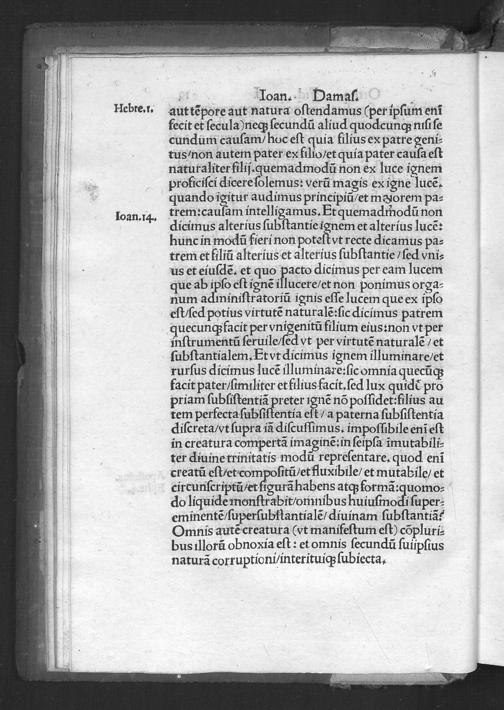 Ioan. Damas.
Hebre.1.
aut tēpore aut natura ostendamus (per ipsum enī
fecit et secula) neqȝ secundū aliud quodcunqȝ nisi se
cundum causam/ hoc est quia filius ex patre geni-
tus/ non autem pater ex filio/ et quia pater causa est
naturaliter filij. quemadmodū non ex luce ignem
proficisci dicere solemus: verū magis ex igne lucē.
quando igitur audimus principiū/ et majorem pa-
Ioan.14.
trem: causam intelligamus. Et quemadmodū non
dicimus alterius substantie ignem et alterius lucē:
hunc in modū fieri non potest vt recte dicamus pa-
trem et filiū alterius et alterius substantie/ sed vni-
us et eiusdē. et quo pacto dicimus per eam lucem
que ab ipso est ignē illucere/ et non ponimus orga-
num administratoriū ignis esse lucem que ex ipso
est/ sed potius virtutē naturalē: sic dicimus patrem
quecunqȝ facit per vnigenitū filium eius: non vt per
instrumentū seruile/ sed vt per virtutē naturalē/ et
substantialem. Et vt dicimus ignem illuminare/ et
rursus dicimus lucē illuminare: sic omnia quecūqȝ
facit pater/ similiter et filius facit. sed lux quidē pro
priam subsistentiā preter ignē nō possidet: filius au
tem perfecta subsistentia est/ a paterna subsistentia
discreta/ vt supra iā discussimus. impossibile enī est
in creatura compertā imaginē: in seipsa īmutabili-
ter diuine trinitatis modū representare. quod enī
creatū est/ et compositū/ et fluxibile/ et mutabile/ et
circunscriptū/ et figurā habens atqȝ formā: quomo-
do liquide monstrabit/ omnibus huiusmodi super-
eminentē/ supersubstantialē/ diuinam substantiā?
Omnis autē creatura (vt manifestum est) cōpluri-
bus illorū obnoxia est: et omnis secundū suiipsius
naturā corruptioni/ interituiqȝ subiecta.